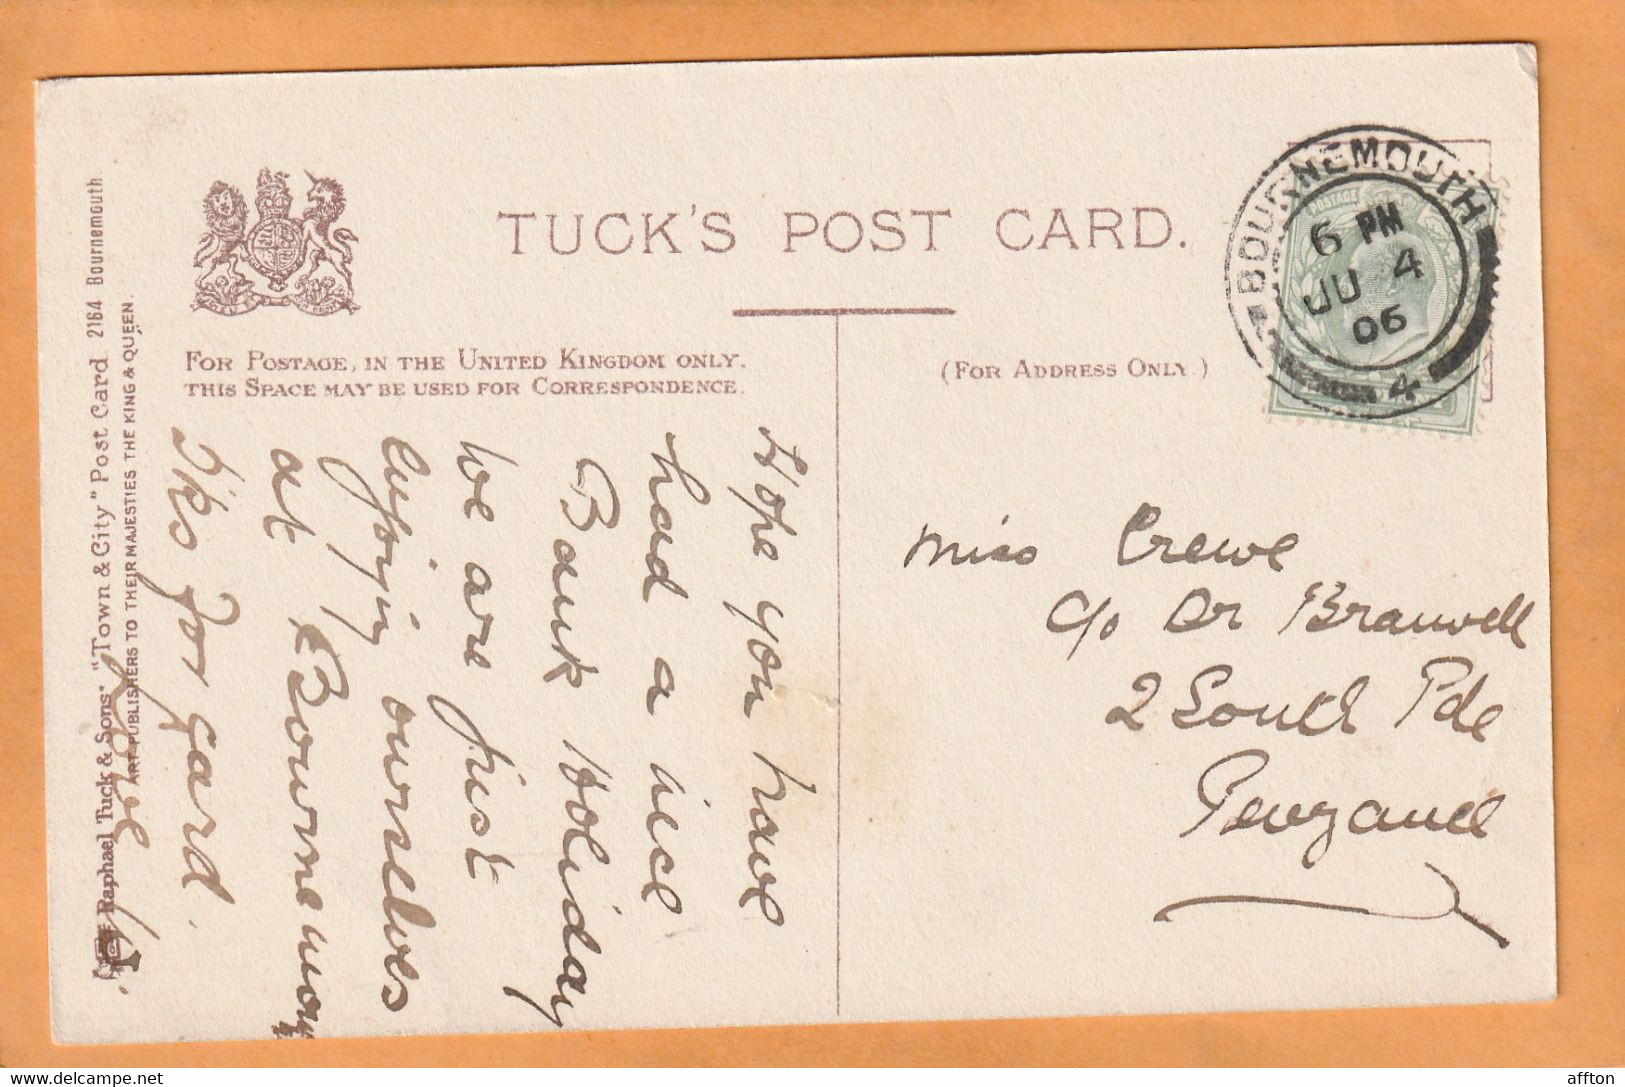 TUCK'S POST CARD.
FOR POSTAGE, IN THE UNITED KINGDOM ONLY.
THIS SPACE MAY BE USED FOR CORRESPONDENCE.
(FOR ADDRESS ONLY.)
BOURNEMOUTH
6 PM
JU 4
06
4
POSTAGE
Raphael Tuck & Sons' "Town & City" Post Card 2164 Bournemouth
ART PUBLISHERS TO THEIR MAJESTIES THE KING & QUEEN.
Hope you have
had a nice
Bank Holiday
we are just
enjoying ourselves
at Bournemouth
Tks for card.
Love
Miss Crewe
c/o Dr Branwell
2 South Pde
Penzance
affton